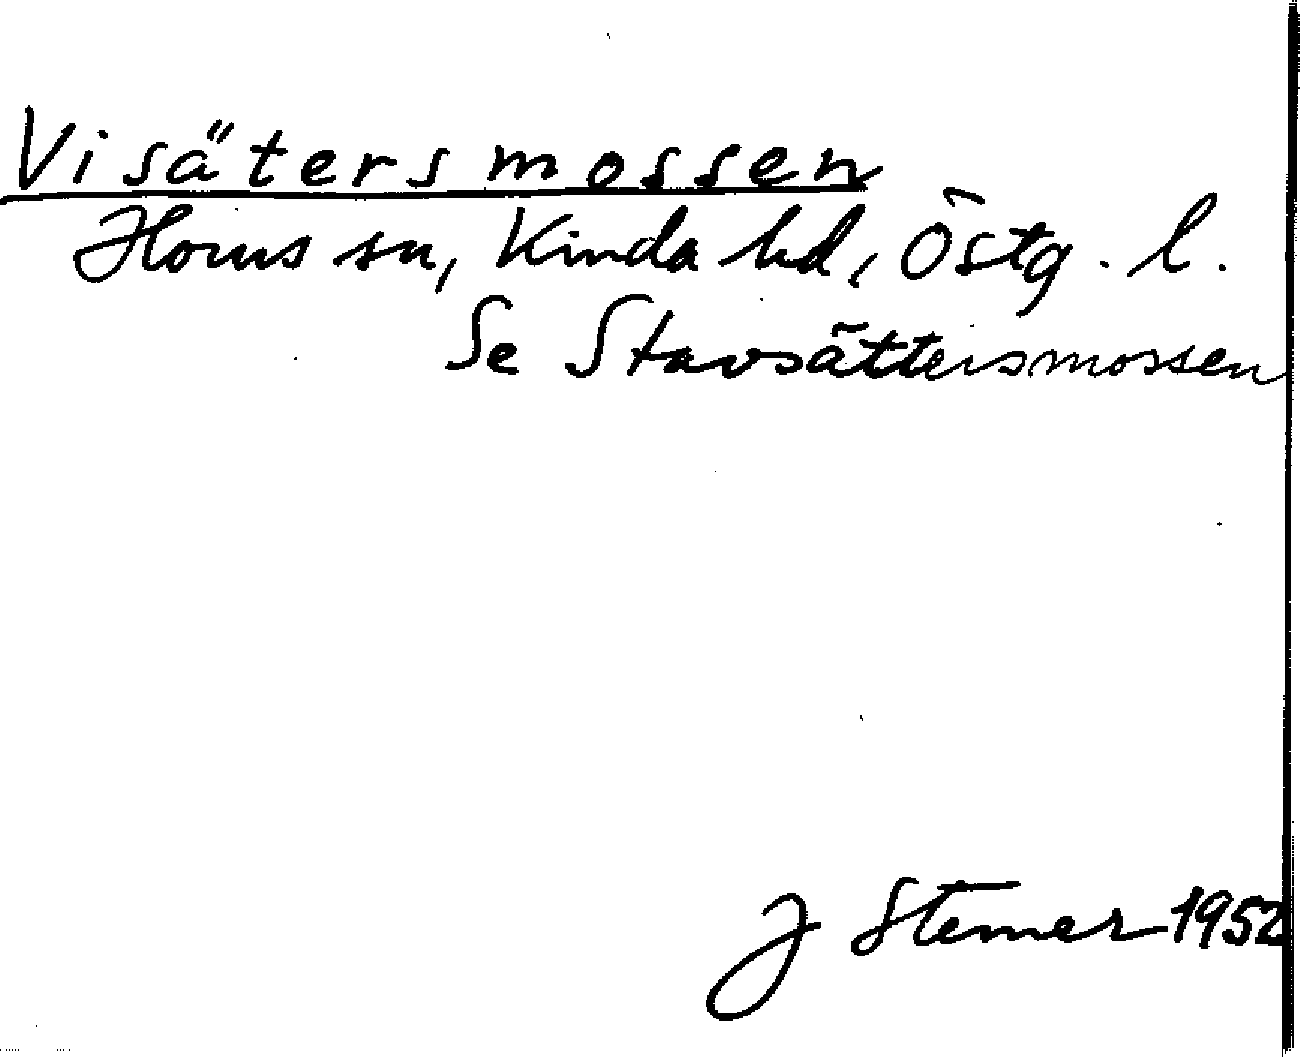 Visätersmossen
Horns sn, Kinda hd, Östg. l.
Se Stavsättersmossen
J Stemer 1952